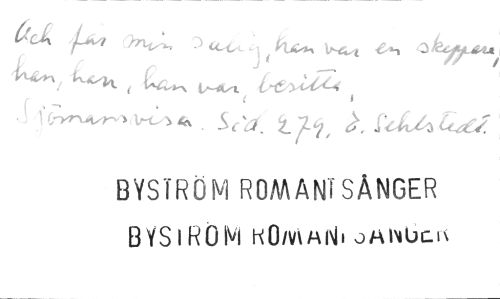 Och far min salig, han var en skeppare,
han, han, han var, besitta,
Sjömansvisa. Sid. 279, E. Sehlstedt.
BYSTRÖM ROMANI SÅNGER
BYSTRÖM ROMANI SÅNGER